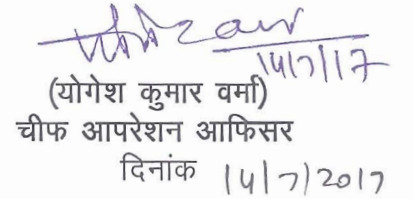 14/7/17
(योगेश कुमार वर्मा)
चीफ आपरेशन आफिसर
दिनांक 14/7/2017